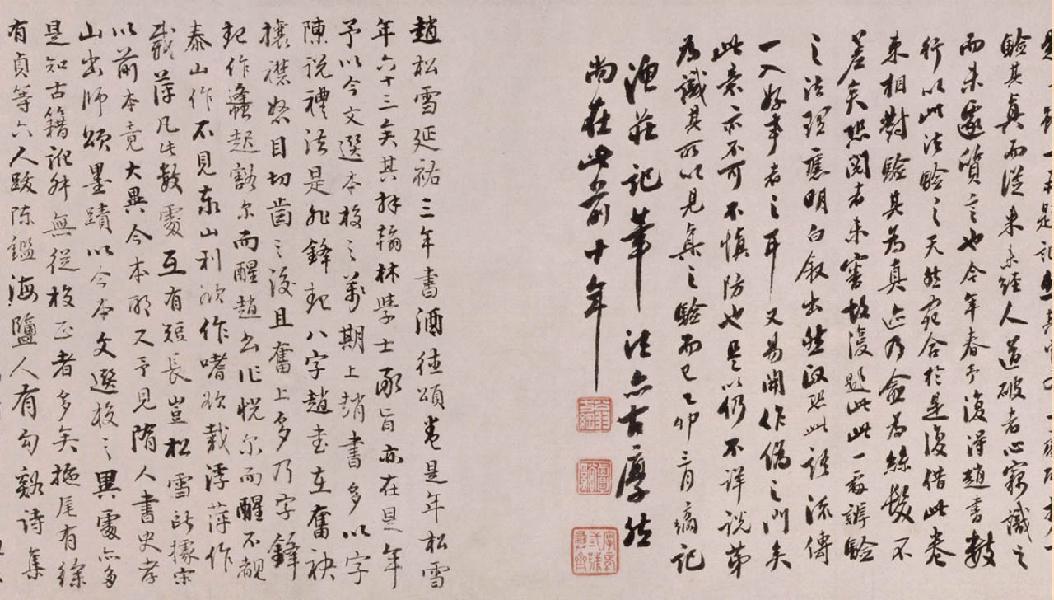 驗其真而從來未經人道破者心竊識之
而未遽質言也今年春予復得趙書數
行以此法驗之天然宛合於是復借此卷
來相對驗其為真迹乃僉為絲髮不
差矣然閱者未審故復題此此一段辨驗
之法理應明白敘出然誠恐此語流傳
一入好事者之耳又易開作偽之門矣
此意亦不可不慎防也是以仍不詳說第
為識其所以見真之驗而已乙卯三月 記
漁莊記筆法亦古厚然
尚在此前十年
趙松雪延祐三年書酒德頌卷是年松雪
年六十三矣其拜翰林學士承旨亦在是年
予以今文選本校之萬期上趙書多以字
陳說禮法是非鋒起八字趙書在奮袂
攘襟怒目切齒之後且奮上多乃字鋒
起作蠭起豁尔而醒趙書作恍尔而醒不覩
泰山作不見泰山利欲作嗜欲載浮萍作
載萍凡此數處互有短長豈松雪所據宋
以前本竟大異今本耶又予見隋人書史孝
山出師頌墨蹟以今本文選校之異處亦多
是知古籍訛舛無從校正者多矣極尾有徐
有貞等六人跋陳鑑海鹽人有句谿詩集